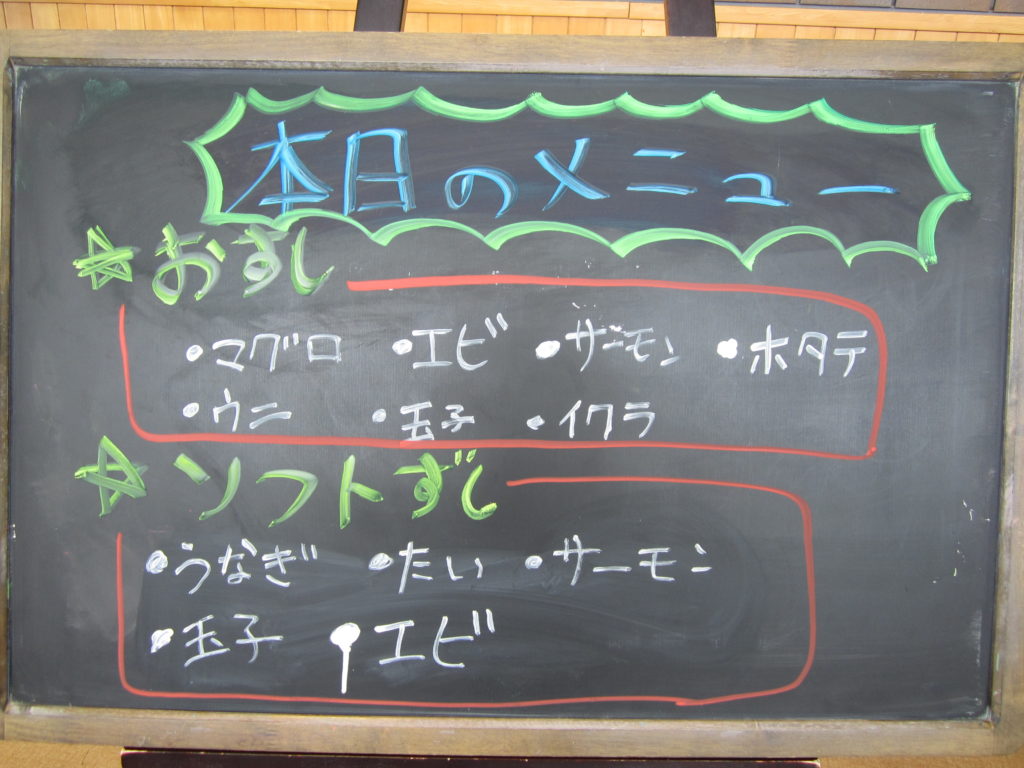 本日のメニュー
☆おすし
・マグロ ・エビ ・サーモン ・ホタテ
・ウニ ・玉子 ・イクラ
☆ソフトずし
・うなぎ ・たい ・サーモン
・玉子 ・エビ